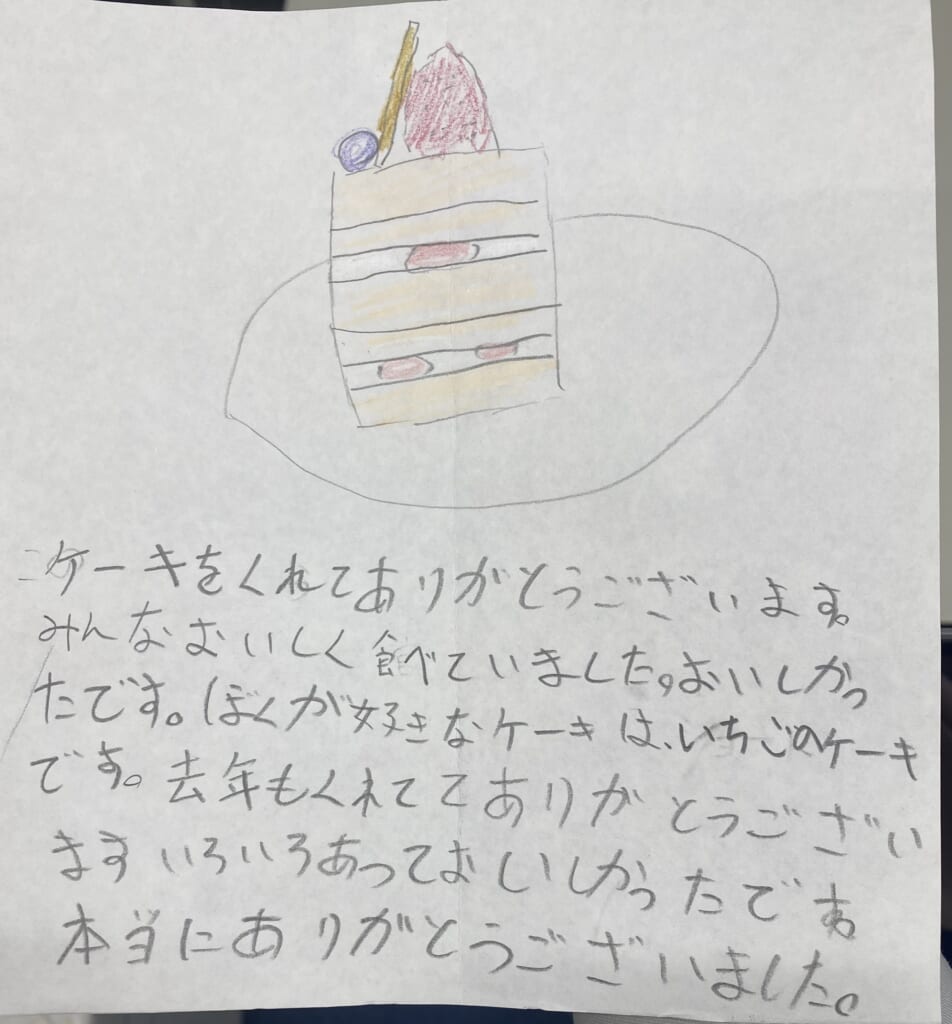 ケーキをくれてありがとうございます。
みんなおいしく食べていました。おいしかっ
たです。ぼくが好きなケーキは、いちごのケーキ
です。去年もくれててありがとうござい
ますいろいろあっておいしかったです。
本当にありがとうございました。